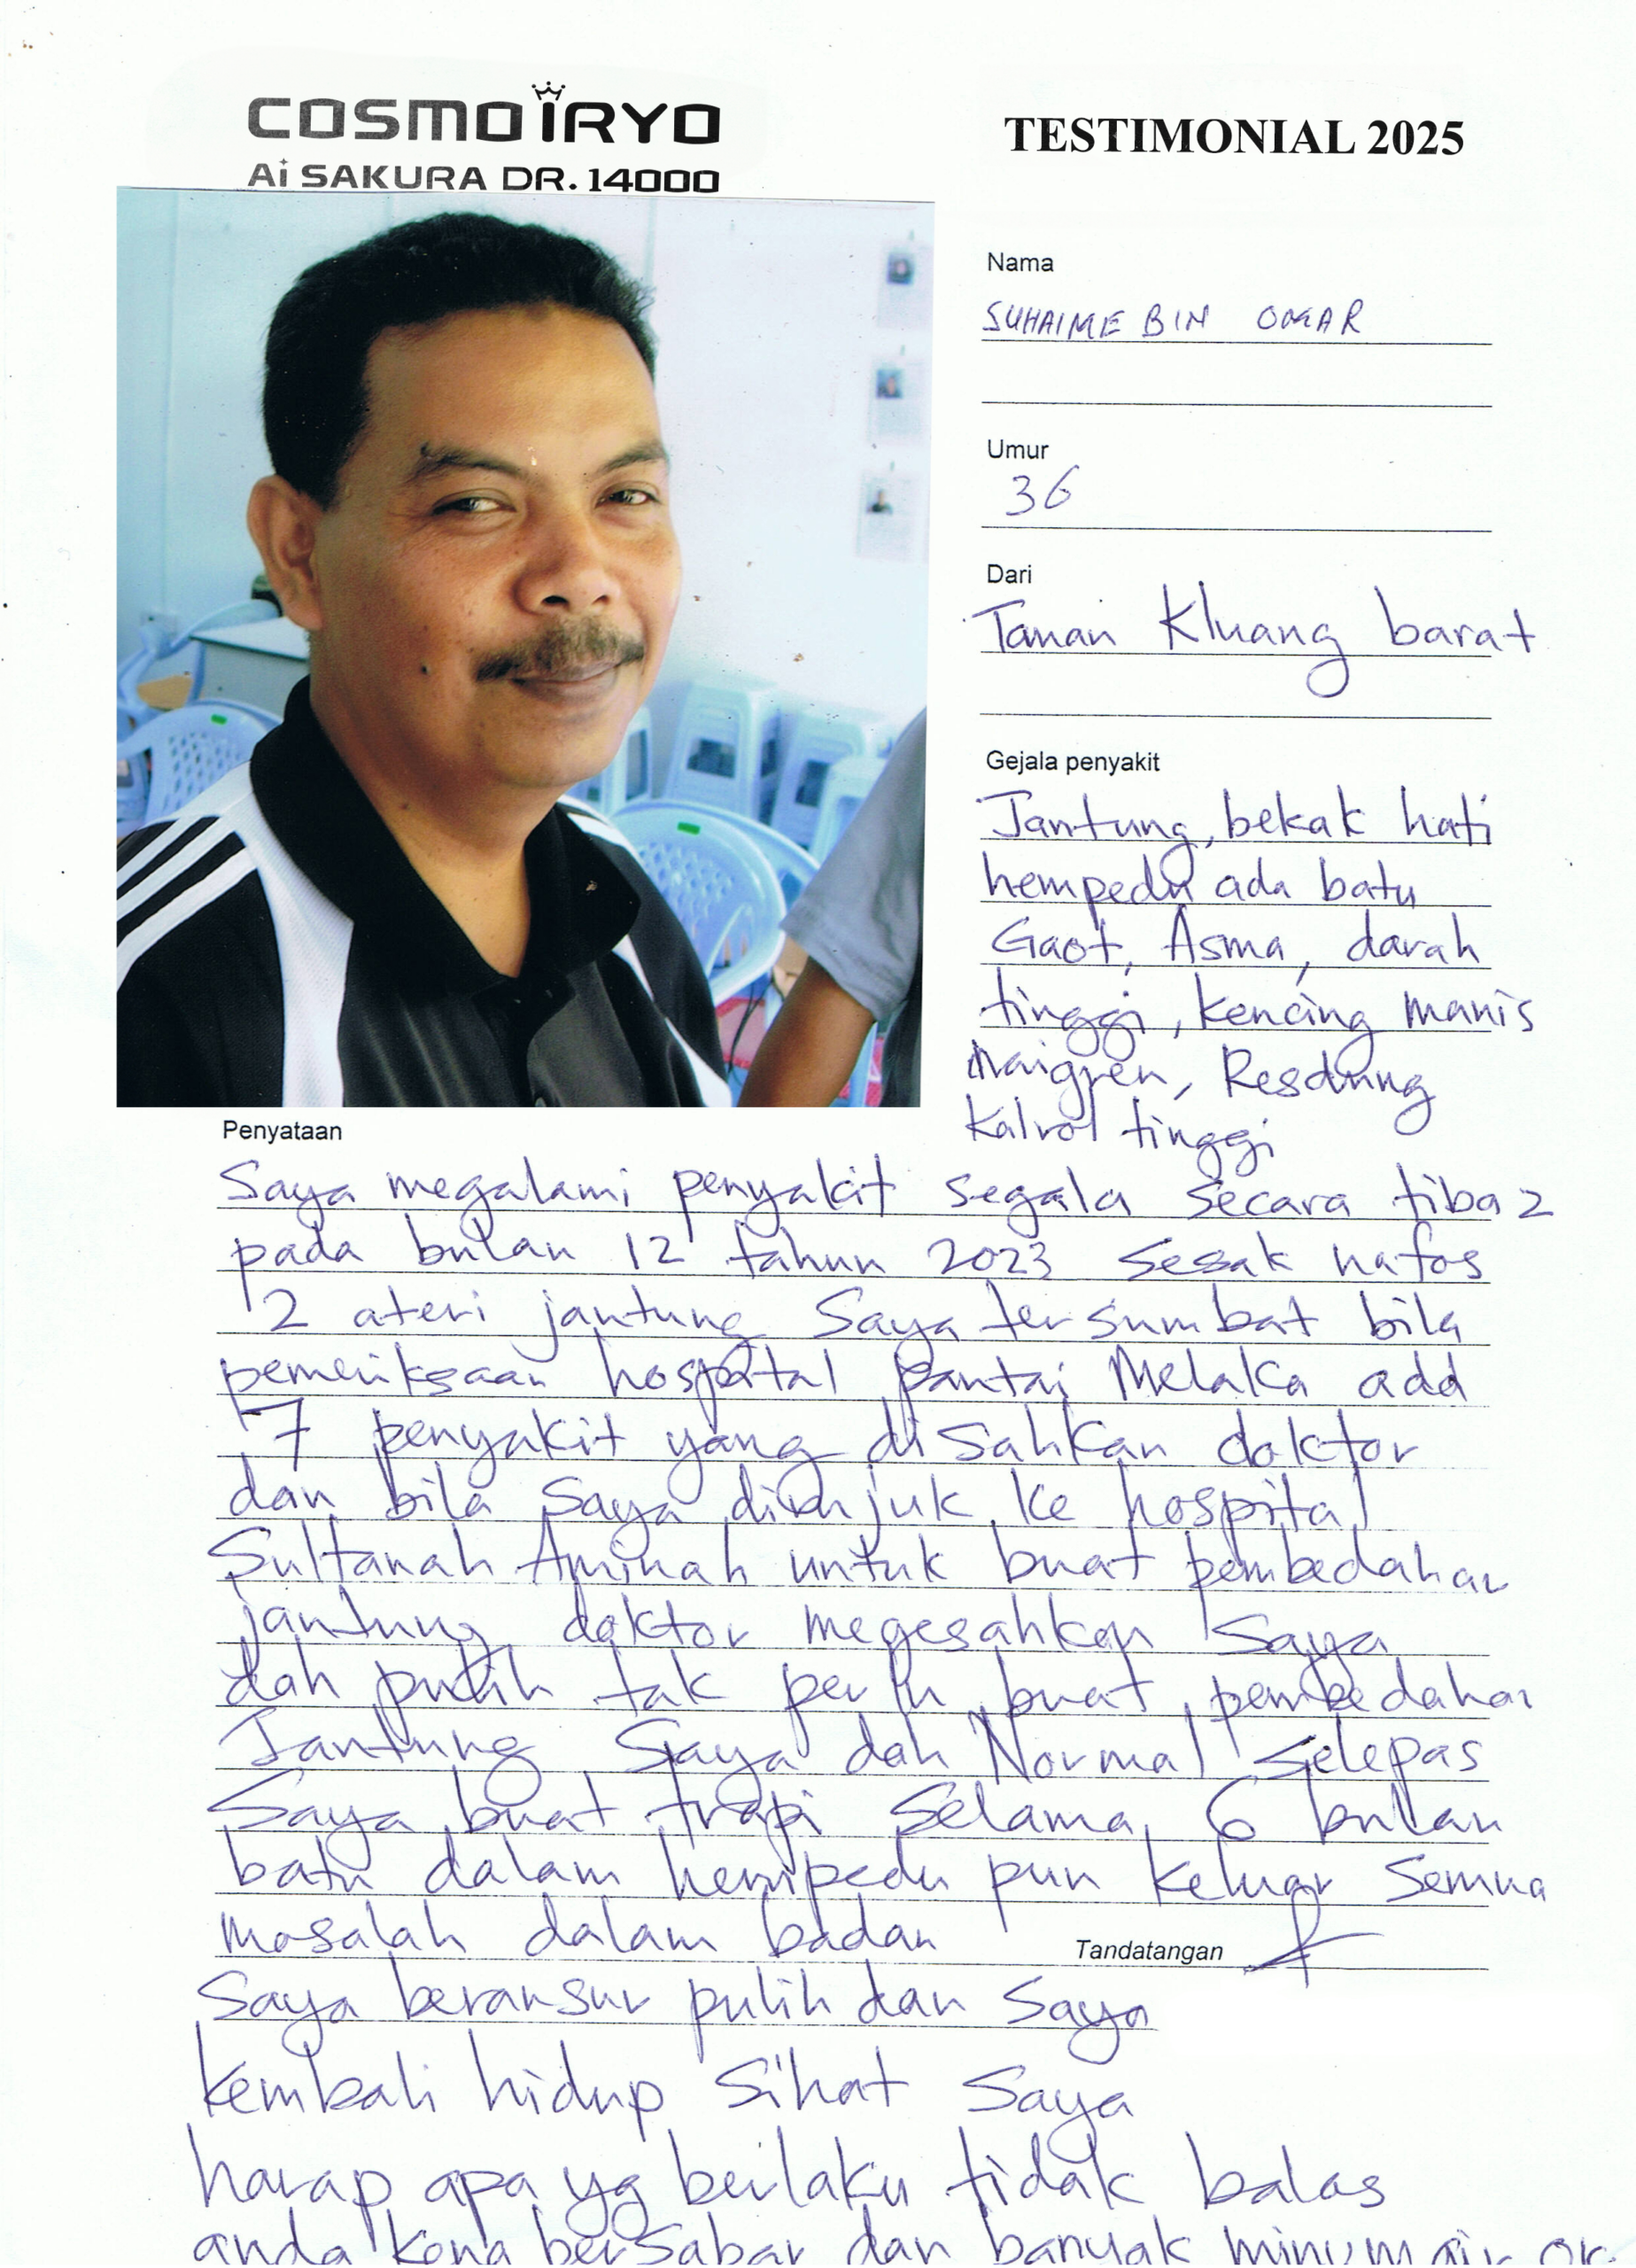 COSMO iRYO
Ai SAKURA DR. 14000
TESTIMONIAL 2025
Nama
SUHAIME BIN OMAR
Umur
36
Dari
Taman Kluang barat
Gejala penyakit
Jantung, bekak hati
hempedu ada batu
Gaot, Asma, darah
tinggi, kencing manis
Maigren, Resdung
tinggi
Penyataan
Saya megalami penyakit segala secara tiba2
pada bulan 12 tahun 2023 sesak nafas
2 ateri jantung saya tersumbat bila
pemeriksaan hospital pantai Melaka add
7 penyakit yang disahkan doktor
dan bila saya dirujuk ke hospital
Sultanah Aminah untuk buat pembedahan
jantung doktor megesahkan saya
dah pulih tak perlu buat pembedahan
Jantung Saya dah Normal selepas
Saya buat trapi selama 6 bulan
batu dalam hempedu pun keluar semua
masalah dalam badan
Tandatangan
Saya beransur pulih dan saya
kembali hidup sihat saya
harap apa yg berlaku tidak balas
anda kena bersabar dan banyak minum air